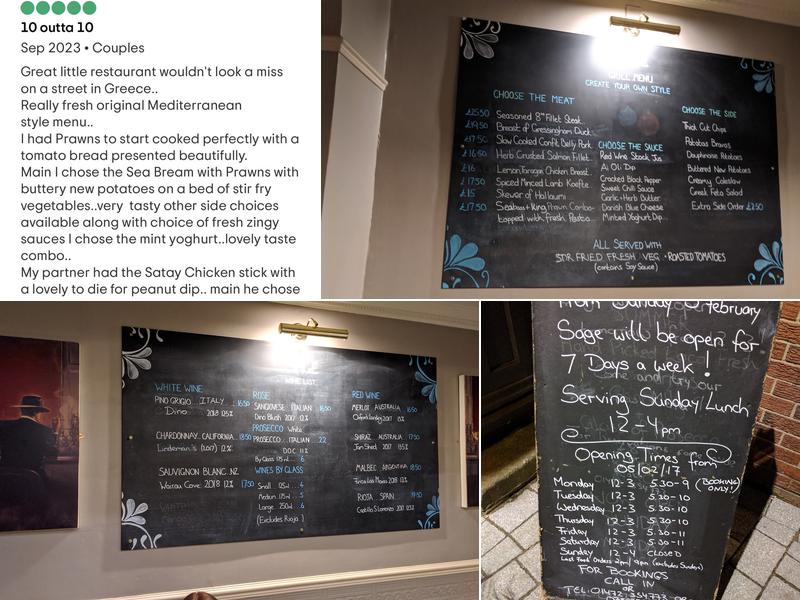 10 outta 10
Sep 2023 • Couples
Great little restaurant wouldn't look a miss
on a street in Greece..
Really fresh original Mediterranean
style menu..
I had Prawns to start cooked perfectly with a
tomato bread presented beautifully.
Main I chose the Sea Bream with Prawns with
buttery new potatoes on a bed of stir fry
vegetables..very tasty other side choices
available along with choice of fresh zingy
sauces I chose the mint yoghurt..lovely taste
combo..
My partner had the Satay Chicken stick with
a lovely to die for peanut dip.. main he chose
MENU
CREATE YOUR OWN STYLE
CHOOSE THE MEAT
£25.50 Seasoned 8oz Fillet Steak
£19.50 Breast of Gressingham Duck
£17.50 Slow Cooked Confit Belly Pork
£16.50 Herb Crusted Salmon Fillet
£16 Lemon, Tarragon Chicken Breast
£17.50 Spiced Minced Lamb Kofte
£15 Skewer of Halloumi
£17.50 Seabass + King Prawn Combo
topped with fresh Pesto
CHOOSE THE SAUCE
Red Wine Stock Jus
Ai Oli Dip
Cracked Black Pepper
Sweet Chilli Sauce
Garlic + Herb Butter
Danish Blue Cheese
Minted Yoghurt Dip
CHOOSE THE SIDE
Thick Cut Chips
Patatas Bravas
Dauphinoise Potatoes
Buttered New Potatoes
Creamy Coleslaw
Greek Feta Salad
Extra Side Order £3.50
ALL SERVED WITH
STIR FRIED FRESH VEG • ROASTED TOMATOES
(contains Soy Sauce)
WINE LIST
WHITE WINE
PINO GRIGIO ITALY 16.50
Dino 2018 12%
CHARDONNAY. CALIFORNIA 18.50
Lindeman's 12%
SAUVIGNON BLANC. NZ
Wairau Cove 2018 12% 17.50
ROSE
SANGIOVESE ITALIAN 16.50
Dino Blush 2017 12%
PROSECCO White
PROSECCO ITALIAN 22
DOC 11%
By Glass 6
WINES BY GLASS
Small 4
Medium 175ml 5
Large 250ml 6
(Excludes Rioja)
RED WINE
MERLOT AUSTRALIA 16.50
2017
SHIRAZ AUSTRALIA 17.50
Jam Shed 2017
MALBEC ARGENTINA 18.50
2018
RIOJA SPAIN 19.50
2017
From Sunday 5th February
Sage will be open for
7 Days a week!
Serving Sunday Lunch
12-4pm
Opening Times from
05/02/17
Monday 12-3 5.30-9 (BOOKING ONLY!)
Tuesday 12-3 5.30-10
Wednesday 12-3 5.30-10
Thursday 12-3 5.30-10
Friday 12-3 5.30-11
Saturday 12-3 5.30-11
Sunday 12-4 CLOSED
Last Food Orders 2pm/9pm (excludes Sunday)
FOR BOOKINGS
CALL IN
OR
TEL: 01472 354773